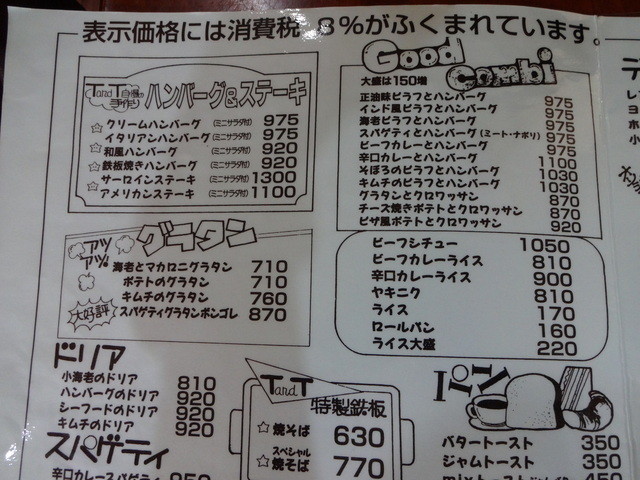 表示価格には消費税 8%がふくまれています。
TandT自慢の手作り ハンバーグ&ステーキ
☆クリームハンバーグ (ミニサラダ付) 975
☆イタリアンハンバーグ (ミニサラダ付) 975
☆和風ハンバーグ (ミニサラダ付) 920
☆鉄板焼きハンバーグ (ミニサラダ付) 920
☆サーロインステーキ (ミニサラダ付) 1300
☆アメリカンステーキ (ミニサラダ付) 1100
アツアツ! グラタン
海老とマカロニグラタン 710
ポテトのグラタン 710
キムチのグラタン 760
大好評 スパゲティグラタンボンゴレ 870
ドリア
小海老のドリア 810
ハンバーグのドリア 920
シーフードのドリア 920
キムチのドリア 920
スパゲティ
辛口カレースパゲティ
Good Combi
大盛は150増
正油味ピラフとハンバーグ 975
インド風ピラフとハンバーグ 975
海老ピラフとハンバーグ 975
スパゲティとハンバーグ (ミート・ナポリ) 975
ビーフカレーとハンバーグ 975
辛口カレーとハンバーグ 1100
そぼろのピラフとハンバーグ 1030
キムチのピラフとハンバーグ 1030
グラタンとクロワッサン 870
チーズ焼きポテトとクロワッサン 870
ピザ風ポテトとクロワッサン 920
ビーフシチュー 1050
ビーフカレーライス 810
辛口カレーライス 900
ヤキニク 810
ライス 170
ロールパン 160
ライス大盛 220
TandT 特製鉄板
☆焼そば 630
☆スペシャル焼そば 770
パン
バタートースト 350
ジャムトースト 350